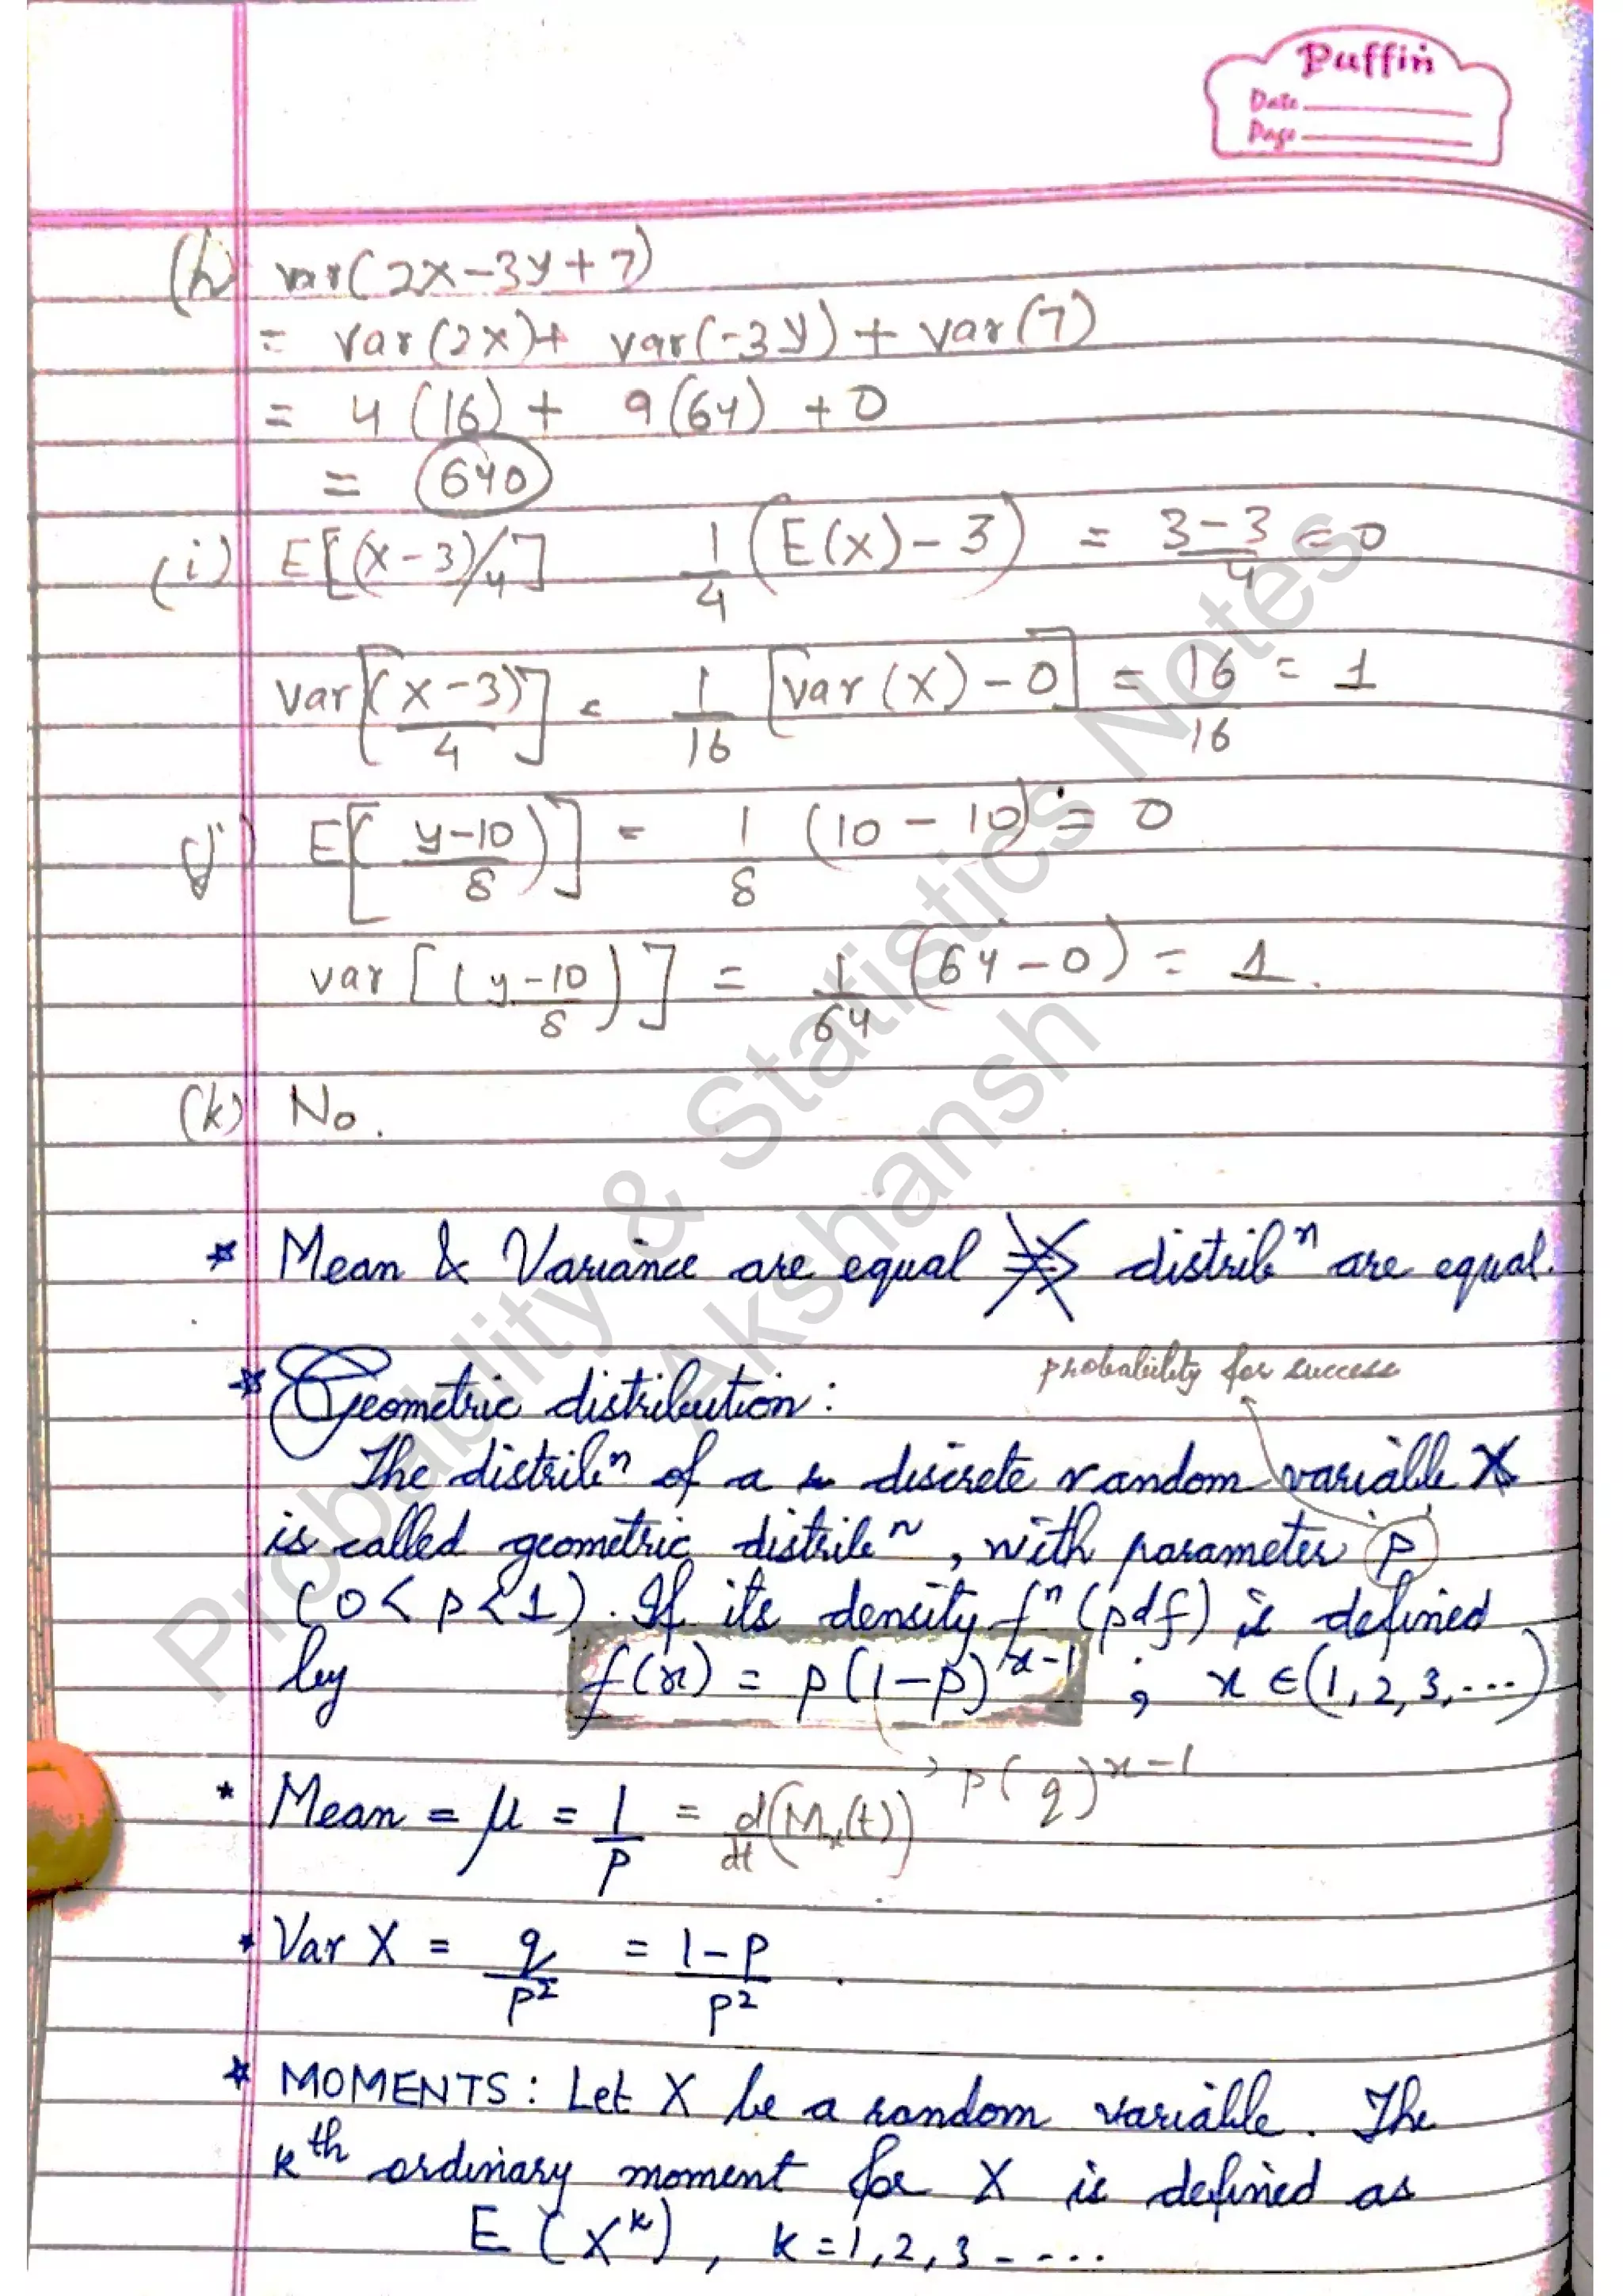 Puffin
Date
Page
(h) var(2x-3y+7)
= var(2x)+ var(-3y) + var(7)
= 4(16) + 9(64) + 0
= 640
(i) E[(x-3)/4] 1/4 (E(x)-3) = 3-3/4 = 0
var[(x-3)/4] = 1/16 [var(x)-0] = 16/16 = 1
(j) E[(y-10/8)] = 1/8 (10-10) = 0
var[(y-10/8)] = 1/64 (64-0) = 1.
(k) No.
* Mean & Variance are equal ⇏ distribⁿ are equal.
probability for success
* Geometric distribution:
The distribⁿ of a discrete random variable X
is called geometric distribⁿ, with parameter p
(0<p<1). If its density fⁿ (pdf) is defined
by f(x) = p(1-p)^x-1 ; x ∈ (1,2,3,...)
p(q)^x-1
* Mean = μ = 1/p = d/dt (Mx(t))
* Var X = q/p² = 1-p/p² .
* MOMENTS: Let X be a random variable. The
kth ordinary moment for X is defined as
E(X^k), k=1,2,3-....
Probability & Statistics Notes
Akshansh